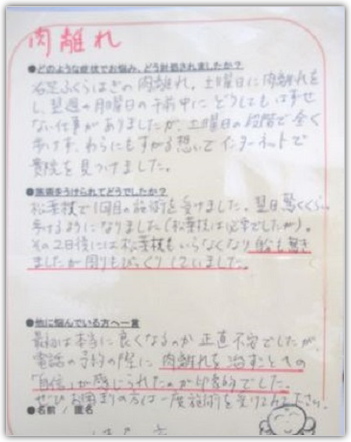 肉離れ
●どのような症状でお悩み、どう対処されましたか？
右足ふくらはぎの肉離れ。土曜日に肉離れを
し、翌週の月曜日の午前中にどうしてもはずせ
ない仕事がありましたが、土曜日の段階で全く
歩けず、わらにもすがる想いでインターネットで
貴院を見つけました。
●施術をうけられてどうでしたか？
松葉杖で1回目の施術を受けました。翌日驚くくらい
歩けるようになりました(松葉杖は必要でしたが)。
その2日後には松葉杖もいらなくなり 船も驚き
ましたが周りもびっくりしていました。
●他に悩んでいる方へ一言
最初は本当に良くなるのか正直不安でしたが
電話の予約の際に 肉離れを治すことの
「自信」が感じられたのが印象的でした。
ぜひお困りの方は一度施術を受けてみて下さい。
●名前 / 匿名